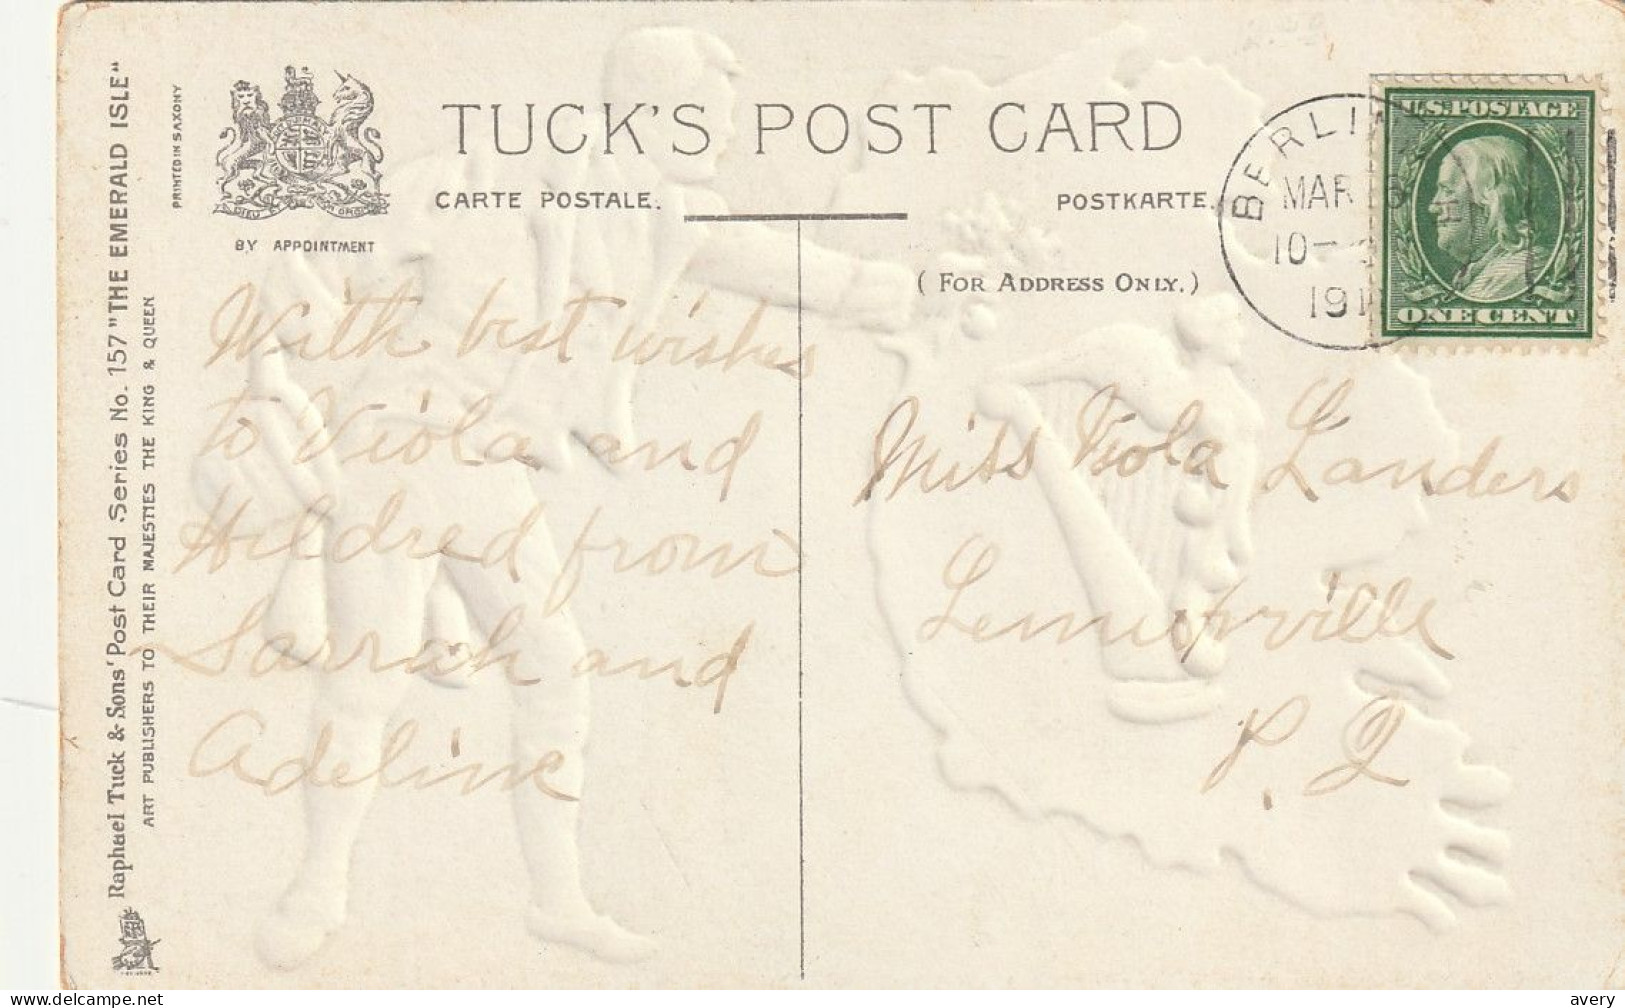 TUCK'S POST CARD
CARTE POSTALE.
POSTKARTE.
BY APPOINTMENT
(FOR ADDRESS ONLY.)
PRINTED IN SAXONY
Raphael Tuck & Sons' Post Card Series No. 157 "THE EMERALD ISLE"
ART PUBLISHERS TO THEIR MAJESTIES THE KING & QUEEN
With best wishes
to Viola and
Hildred from
Sarrah and
Adeline
BERLIN
MAR
10—
191
U.S. POSTAGE
ONE CENT
Miss Viola Landers
P. Q
delcampe.net
avery